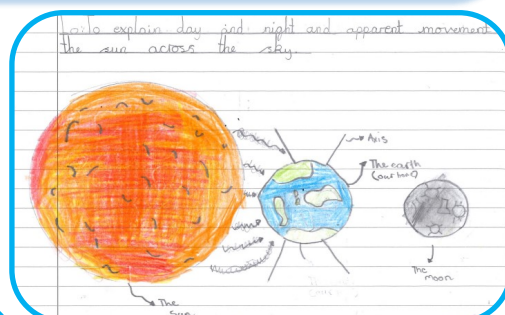 L.o: To explain day and night and apparent movement
the sun across the sky.
Axis
The earth
(our home)
The
moon
The
sun